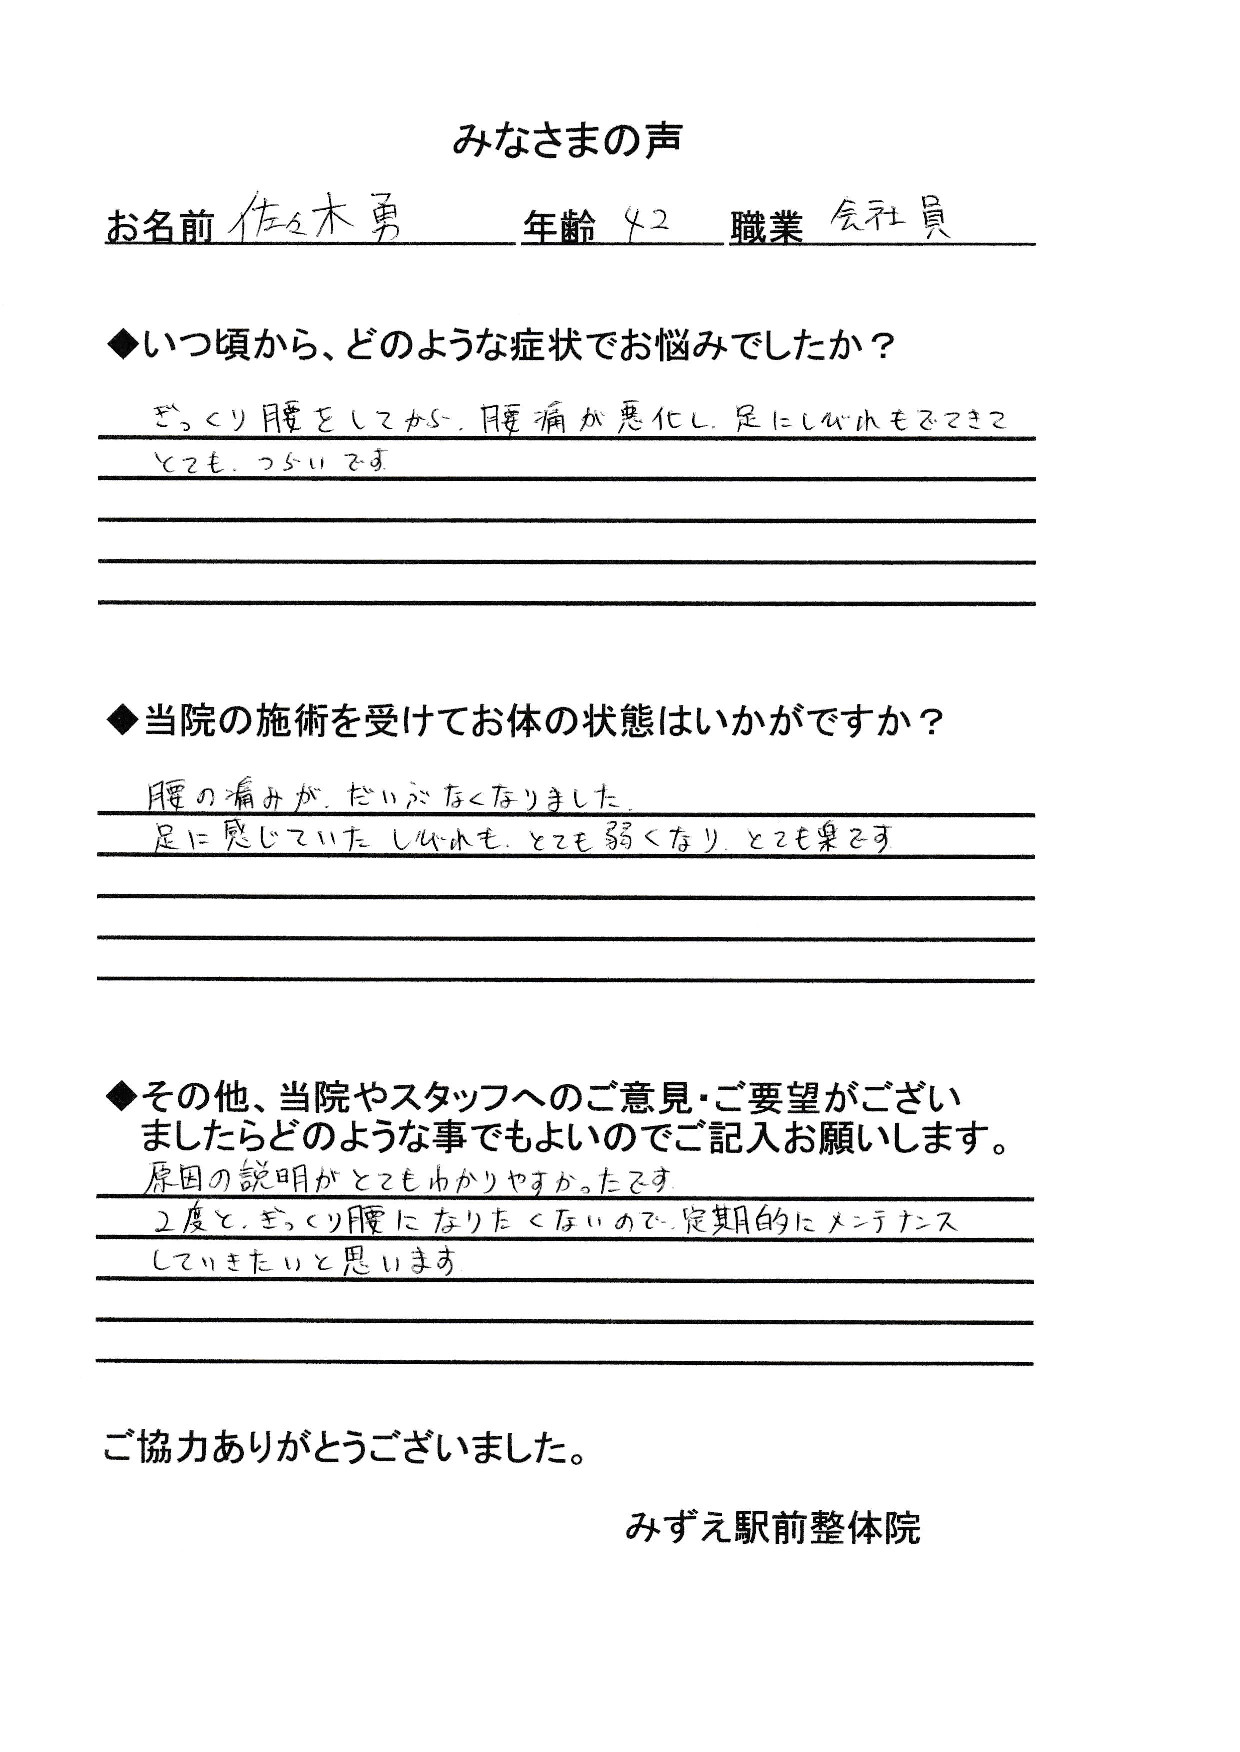 みなさまの声
お名前 佐々木勇 年齢 42 職業 会社員
◆いつ頃から、どのような症状でお悩みでしたか？
ぎっくり腰をしてから、腰痛が悪化し、足にしびれもでてきて
とても、つらいです
◆当院の施術を受けてお体の状態はいかがですか？
腰の痛みが、だいぶなくなりました、
足に感じていた しびれも、とても弱くなり、とても楽です
◆その他、当院やスタッフへのご意見・ご要望がござい
ましたらどのような事でもよいのでご記入お願いします。
原因の説明がとてもわかりやすかったです
2度と、ぎっくり腰になりたくないので、定期的にメンテナンス
していきたいと思います
ご協力ありがとうございました。
みずえ駅前整体院